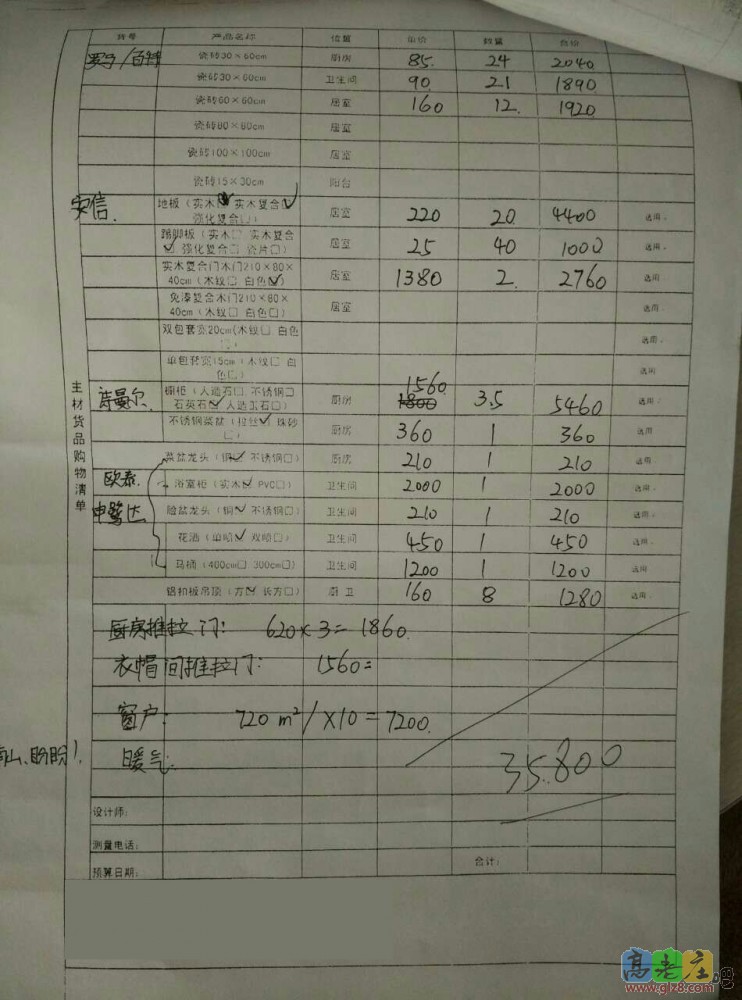 货号 产品名称 位置 单价 数量 合价
瓷砖30×60cm 厨房 85. 24 2040
瓷砖30×60cm 卫生间 90. 21 1890
瓷砖60×60cm 居室 160 12. 1920
瓷砖80×80cm 居室
瓷砖100×100cm 居室
瓷砖15×30cm 阳台
安信. 地板(实木 实木复合☑
强化复合□) 居室 220 20 4400 选用.
踢脚板(实木□ 实木复合
☑ 强化复合□ 瓷片□) 居室 25 40 1000 选用.
实木复合门木门210×80×
40cm(木纹□ 白色☑) 居室 1380 2. 2760 选用.
免漆复合木门210×80×
40cm(木纹□ 白色□) 居室 选用.
双包套宽20cm(木纹□ 白色
□) 选用.
单包套宽15cm(木纹□ 白
色□) 选用
主材货品购物清单
1560
诗曼尔. 橱柜(人造石□ 不锈钢□
石英石☑ 人造玉石□) 厨房 1800 3.5 5460 选用:
不锈钢菜盆(拉丝☑ 珠砂
□) 厨房 360 1 360 选用
菜盆龙头(铜☑ 不锈钢□) 厨房 210 1 210 选用
欧泰. 浴室柜(实木☑ PVC□) 卫生间 2000 1 2000 选用.
申鹭达 脸盆龙头(铜☑ 不锈钢□) 卫生间 210 1 210 选用.
花洒(单喷☑ 双喷□) 卫生间 450 1 450 选用.
马桶(400cm□ 300cm□) 卫生间 1200 1 1200 选用
铝扣板吊顶(方☑ 长方□) 厨 卫 160 8 1280 选用.
厨房推拉门: 620×3=1860.
衣帽间推拉门: 1560=
窗户: 720m²/×10=7200.
山、盼盼 暖气. 35.800
设计师:
测量电话:
预算日期: 合计:
高老庄
www.glz8.com